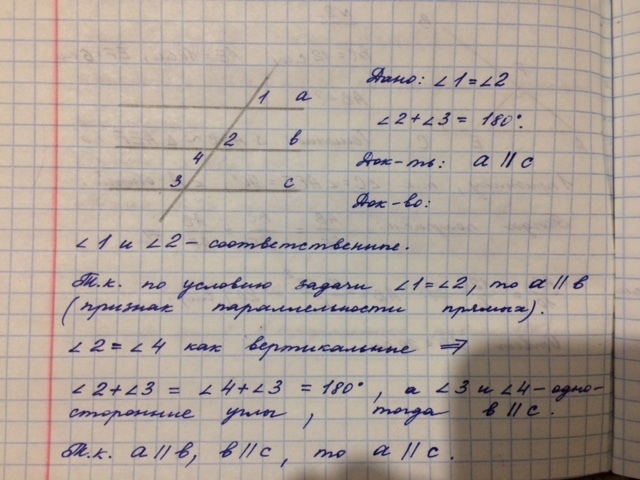 1 a
2 в
4
3 с
Дано: ∠1=∠2
∠2+∠3 = 180°.
Док-ть: a || c
Док-во:
∠1 и ∠2 – соответственные.
Т.к. по условию задачи ∠1=∠2, то a || в
(признак параллельности прямых).
∠2=∠4 как вертикальные ⇒
∠2+∠3 = ∠4+∠3 = 180°, а ∠3 и ∠4 – одно-
сторонние углы, тогда в || с.
Т.к. a || в, в || с, то a || с.